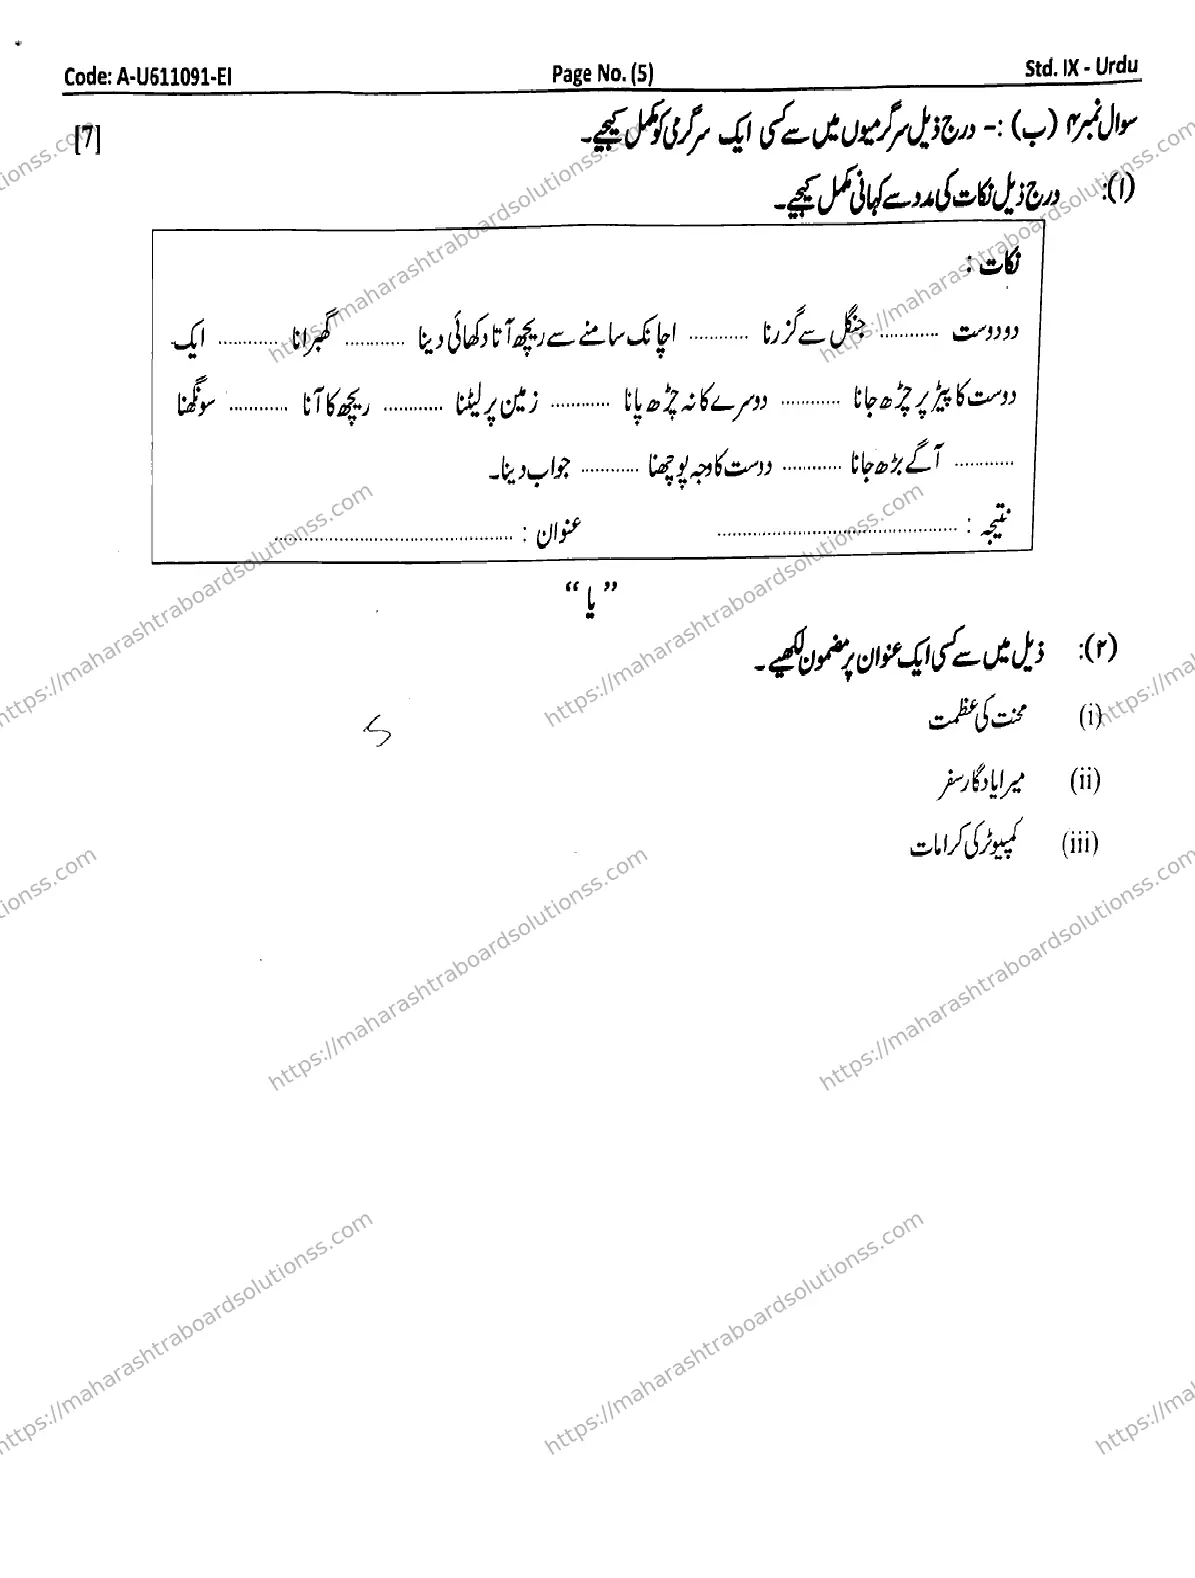 Code: A-U611091-EI Page No. (5) Std. IX - Urdu
سوال نمبر ۴ (ب) :- درج ذیل سرگرمیوں میں سے کسی ایک سرگرمی کو مکمل کیجیے۔ [7]
(۱): درج ذیل نکات کی مدد سے کہانی مکمل کیجیے۔
نکات :
دو دوست ............ جنگل سے گزرنا ............ اچانک سامنے سے ریچھ آتا دکھائی دینا ............ گھبرانا ............ ایک
دوست کا پیڑ پر چڑھ جانا ............ دوسرے کا نہ چڑھ پانا ............ زمین پر لیٹنا ............ ریچھ کا آنا ............ سونگھنا
............ آگے بڑھ جانا ............ دوست کا وجہ پوچھنا ............ جواب دینا۔
نتیجہ : ................................................ عنوان : ................................................
”یا“
(۲): ذیل میں سے کسی ایک عنوان پر مضمون لکھیے۔
(i) محنت کی عظمت
(ii) میرا یادگار سفر
(iii) کمپیوٹر کی کرامات
https://maharashtraboardsolutionss.com